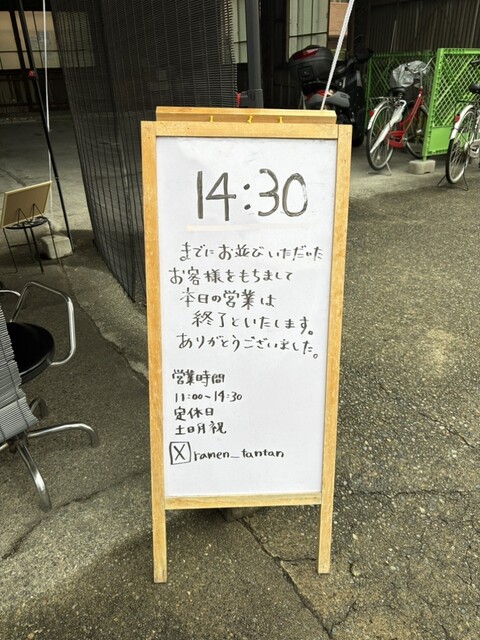 14:30
までにお並びいただいた
お客様をもちまして
本日の営業は
終了といたします。
ありがとうございました。
営業時間
11:00〜14:30
定休日
土日月祝
X ramen_tantan